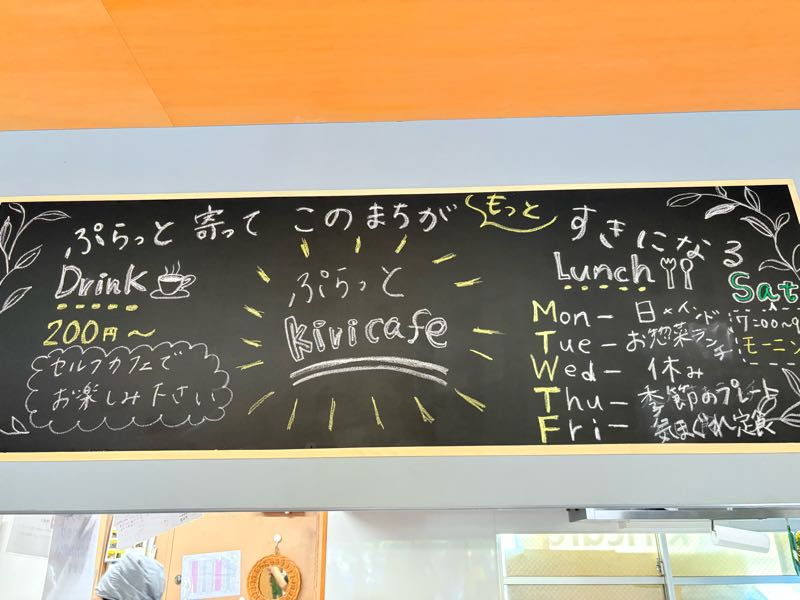 ぷらっと 寄って このまちが もっと すきになる
Drink
200円〜
セルフカフェで
お楽しみ下さい
ぷらっと
kiricafe
Lunch
Mon- 日×インド
Tue- お惣菜ランチ
Wed- 休み
Thu- 季節のプレート
Fri- 気まぐれ定食
Sat
モーニン